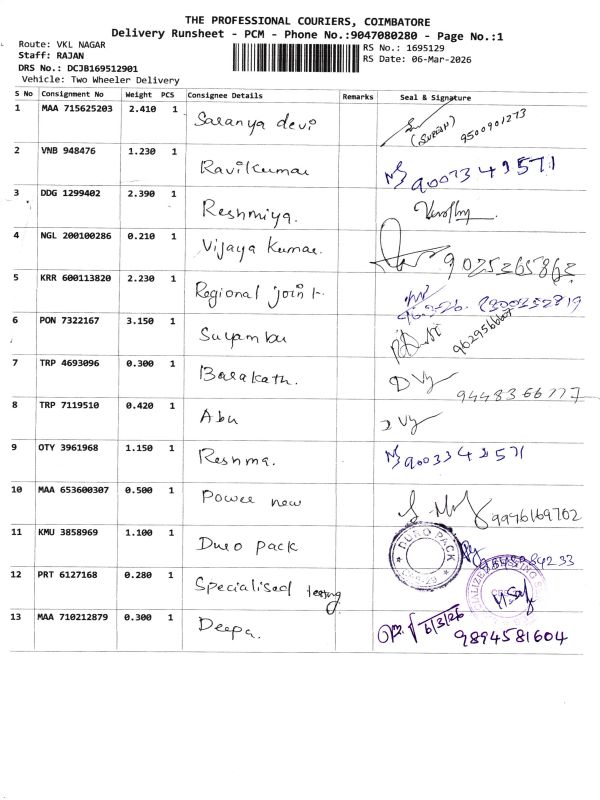 THE PROFESSIONAL COURIERS, COIMBATORE
Delivery Runsheet - PCM - Phone No.:9047080280 - Page No.:1
Route: VKL NAGAR
RS No.: 1695129
Staff: RAJAN
RS Date: 06-Mar-2026
DRS No.: DCJB169512901
Vehicle: Two Wheeler Delivery
S No Consignment No Weight PCS Consignee Details Remarks Seal & Signature
1 MAA 715625203 2.410 1 Saranya devi (SURESH) 9500901273
2 VNB 948476 1.230 1 Ravikumar 9007349571
3 DDG 1299402 2.390 1 Reshmiya.
4 NGL 200100286 0.210 1 Vijaya Kumar. 9025365863
5 KRR 600113820 2.230 1 Regional joint.
6 PON 7322167 3.150 1 Suyambu
7 TRP 4693096 0.300 1 Barakath. 9448366777
8 TRP 7119510 0.420 1 Abu
9 OTY 3961968 1.150 1 Reshma.
10 MAA 653600307 0.500 1 Power new 9996169702
11 KMU 3858969 1.100 1 Duro pack DURO PACK
12 PRT 6127168 0.280 1 Specialised testing
13 MAA 710212879 0.300 1 Deepa. 6/3/26 9894581604